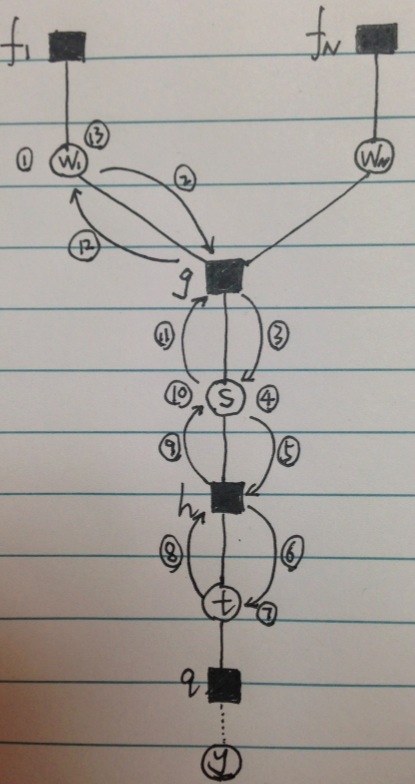 f₁ f_N
⑬
① w₁ ② w_N
⑫
g
⑪ ③
⑩ s ④
⑨ ⑤
h
⑧ ⑥
t ⑦
q
y